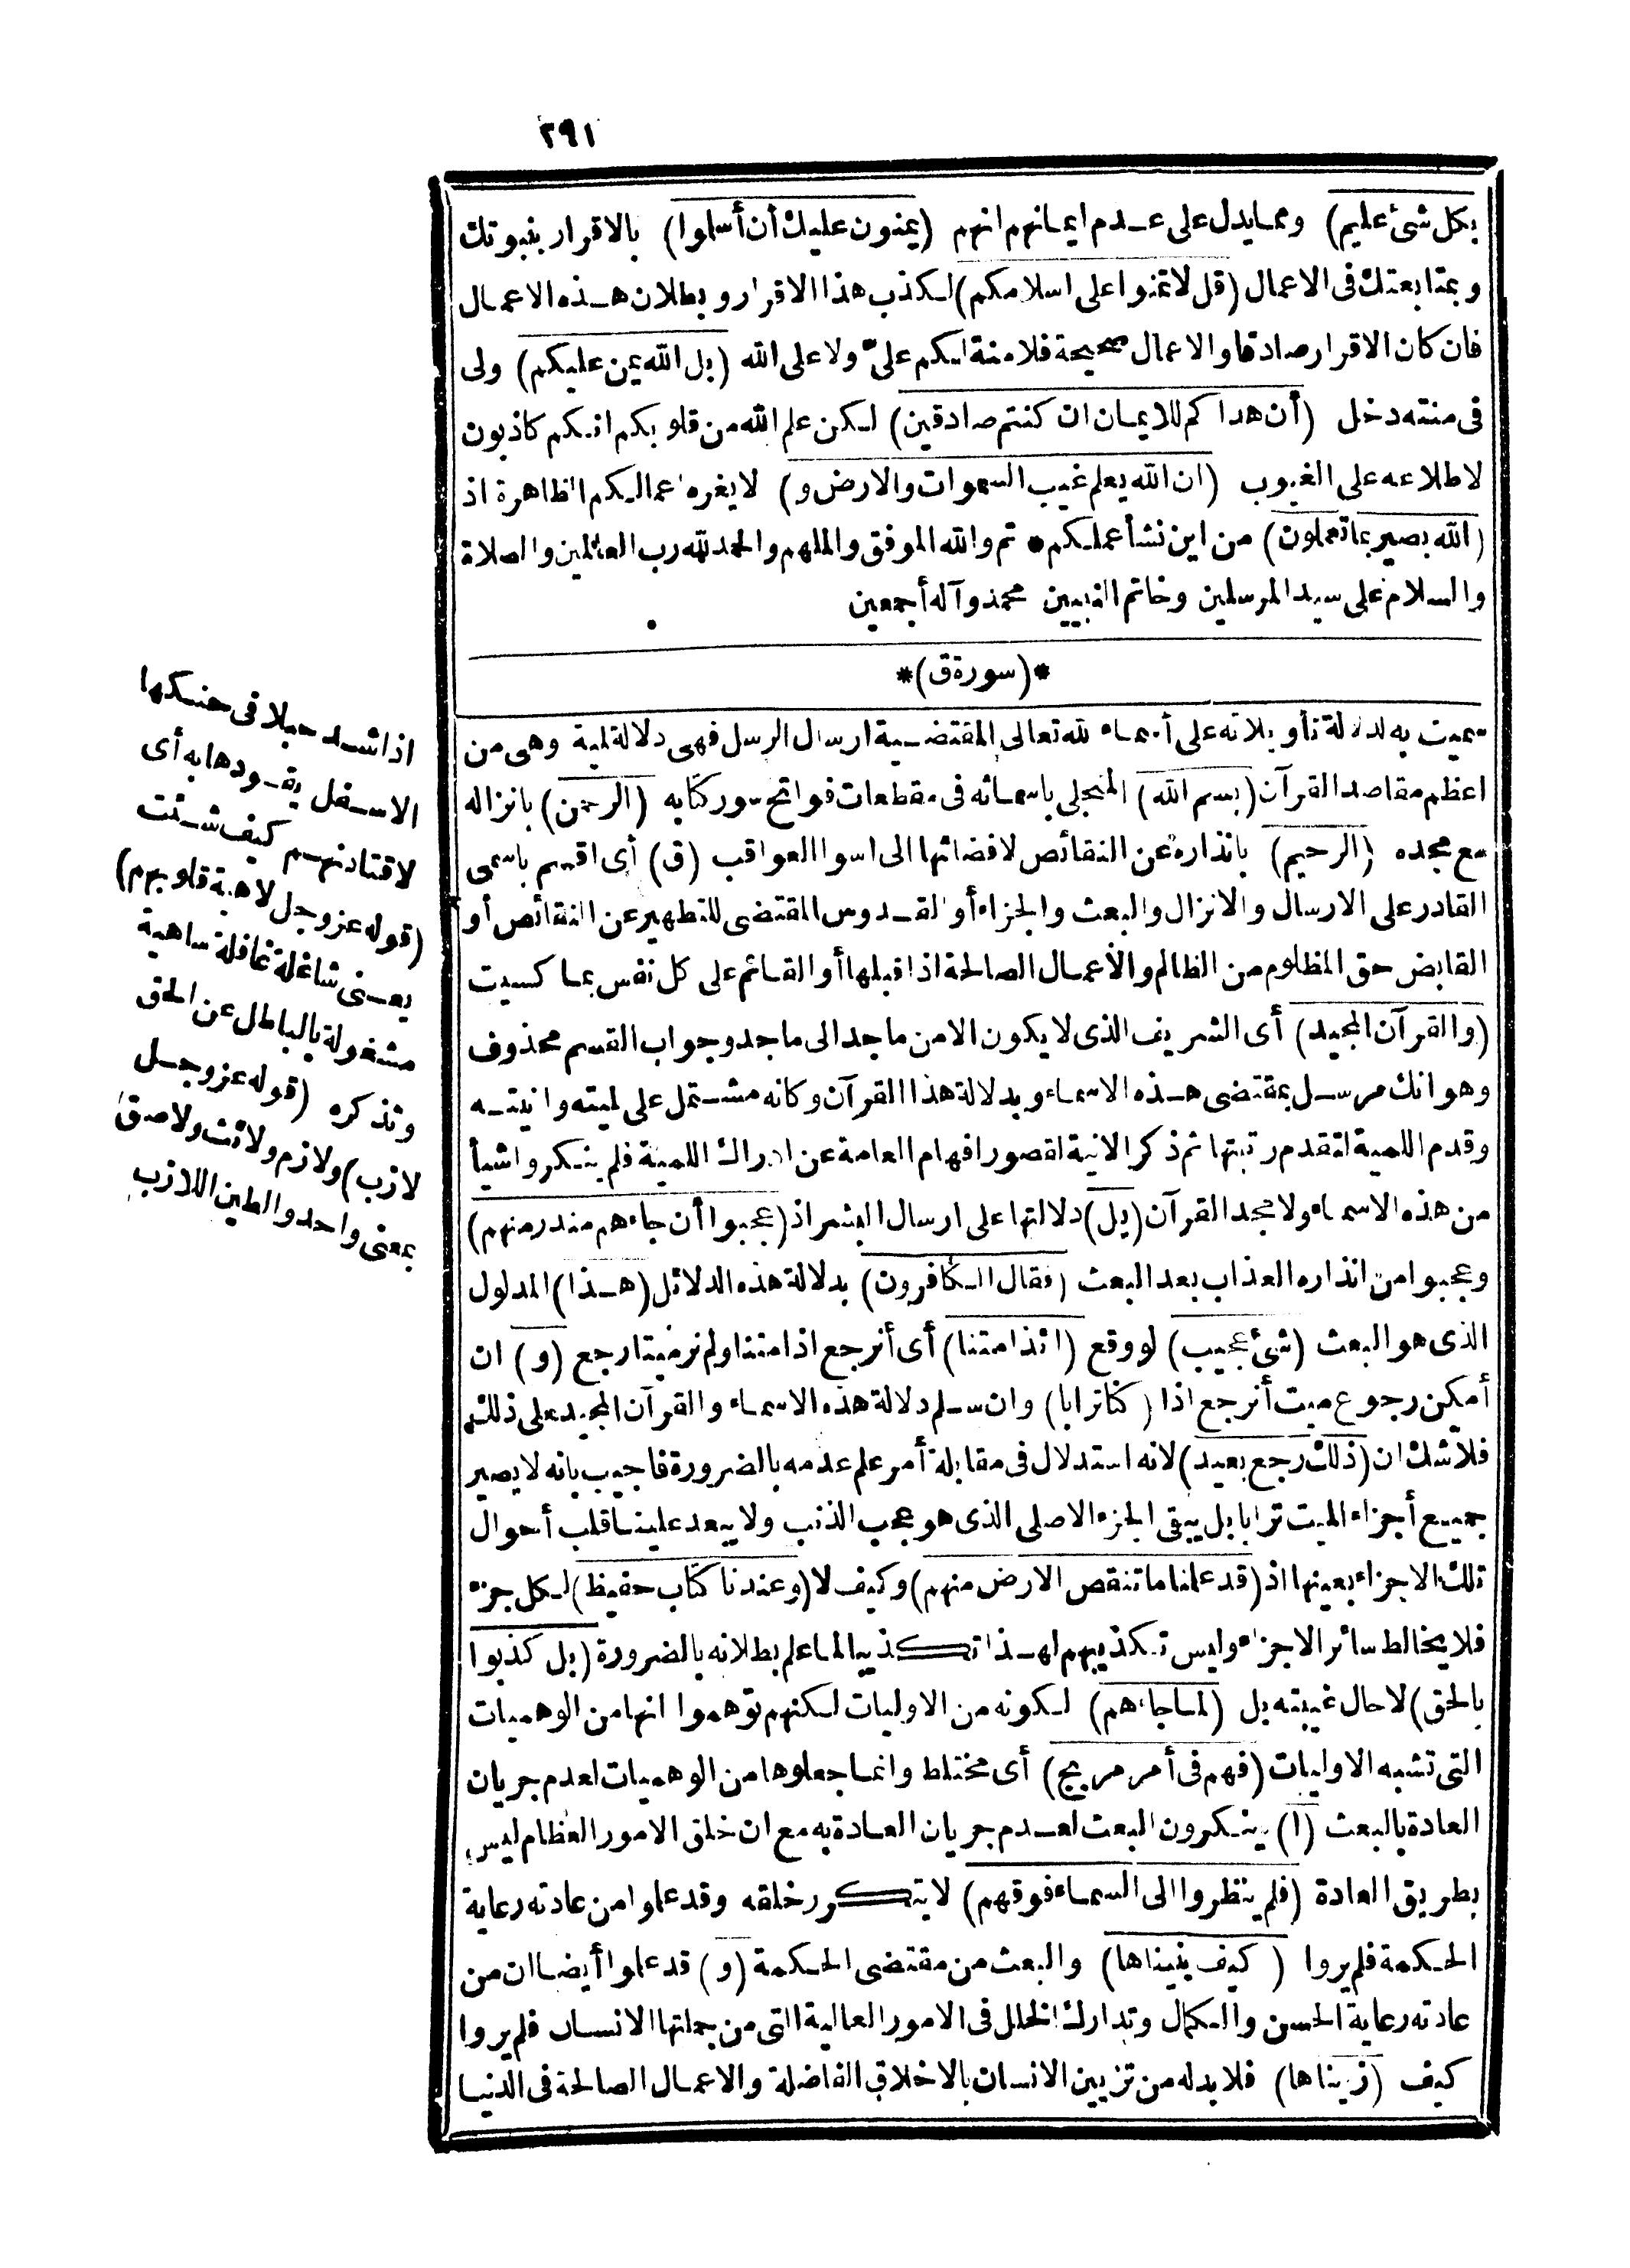 ٢٩١
بكل شئ عليم) ومما يدل على عدم ايمانهم انهم (يمنون عليك أن أسلموا) بالاقرار بنبوتك
وبمتابعتك فى الاعمال (قل لا تمنوا على اسلامكم) لكذب هذا الاقرار وبطلان هذه الاعمال
فان كان الاقرار صادقا والاعمال صحيحة فلا منة لكم علىّ ولا على الله (بل الله يمن عليكم) ولى
فى منته دخل (أن هداكم للايمان ان كنتم صادقين) لكن علم الله من قلوبكم انكم كاذبون
لاطلاعه على الغيوب (ان الله يعلم غيب السموات والارض و) لا يغره اعمالكم الظاهرة اذ
(الله بصير بما تعملون) من اين نشأ عملكم * تم والله الموفق والملهم والحمد لله رب العالمين والصلاة
والسلام على سيد المرسلين وخاتم النبيين محمد وآله أجمعين
*(سورة ق)*
سميت به لدلالة تأويلاته على أسماء لله تعالى المقتضية ارسال الرسل فهى دلالة لمية وهى من
اعظم مقاصد القرآن (بسم الله) المتجلى باسمائه فى مقطعات فواتح سور كتابه (الرحمن) بانزاله
مع مجده (الرحيم) بانذاره عن النقائص لافضائها الى اسوا العواقب (ق) أى اقسم باسمى
القادر على الارسال والانزال والبعث والجزاء أو القدوس المقتضى للتطهير عن النقائص أو
القابض حق المظلوم من الظالم والأعمال الصالحة اذا قبلها أو القائم على كل نفس بما كسبت
(والقرآن المجيد) أى الشريف الذى لا يكون الا من ماجد الى ماجد وجواب القسم محذوف
وهو انك مرسل بمقتضى هذه الاسماء وبدلالة هذا القرآن وكانه مشتمل على لميته وانيته
وقدم اللمية لتقدم رتبتها ثم ذكر الانية لقصور افهام العامة عن ادراك اللمية فلم ينكروا شيأ
من هذه الاسماء ولا مجد القرآن (بل) دلالتها على ارسال البشر اذ (عجبوا أن جاءهم منذر منهم)
وعجبوا من انذاره العذاب بعد البعث (فقال الكافرون) بدلالة هذه الدلائل (هذا) المدلول
الذى هو البعث (شئ عجيب) لو وقع (ائذا متنا) أى أنرجع اذا متنا ولم نر ميتا رجع (و) ان
أمكن رجوع ميت أنرجع اذا (كنا ترابا) وان سلم دلالة هذه الاسماء والقرآن المجيد على ذلك
فلا شك ان (ذلك رجع بعيد) لانه استدلال فى مقابلة أمر علم عدمه بالضرورة فاجيب بانه لا يصير
جميع أجزاء الميت ترابا بل يبقى الجزء الاصلى الذى هو عجب الذنب ولا يبعد علينا قلب أحوال
تلك الاجزاء بعينها اذ (قد علمنا ما تنقص الارض منهم) وكيف لا (وعندنا كتاب حفيظ) لكل جزء
فلا يخالط سائر الاجزاء وليس تكذيبهم لهذا تكذيبا لما علم بطلانه بالضرورة (بل كذبوا
بالحق) لا حال غيبته بل (لما جاءهم) لكونه من الاوليات لكنهم توهموا انها من الوهميات
التى تشبه الاوليات (فهم فى أمر مريج) أى مختلط وانما جعلوها من الوهميات لعدم جريان
العادة بالبعث (ا) ينكرون البعث لعدم جريان العادة به مع ان خلق الامور العظام ليس
بطريق العادة (فلم ينظروا الى السماء فوقهم) لا يتكرر خلقه وقد علموا من عادته رعاية
الحكمة فلم يروا (كيف بنيناها) والبعث من مقتضى الحكمة (و) قد علموا أيضا ان من
عادته رعاية الحسن والكمال وتدارك الخلل فى الامور العالية التى من جملتها الانسان فلم يروا
كيف (زيناها) فلا بد له من تزيين الانسان بالاخلاق الفاضلة والاعمال الصالحة فى الدنيا
اذا شد حبلا فى حنكها
الاسفل يقودها به أى
لاقتادنهم كيف شئت
(قوله عز وجل لاهية قلوبهم)
يعنى شاغلة غافلة ساهية
مشغولة بالباطل عن الحق
وتذكره (قوله عز وجل
لازب) ولازم ولاتب ولاصق
بمعنى واحد والطين اللازب